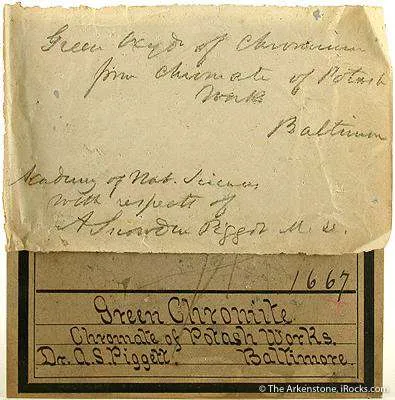 Green Oxyde of Chromium
from Chromate of Potash
Works
Baltimore
Academy of Nat. Sciences
with respects of
A Snowden Piggot M. D.
1667
Green Chromite
Chromate of Potash Works.
Dr. A. S. Piggett. Baltimore.
© The Arkenstone, iRocks.com